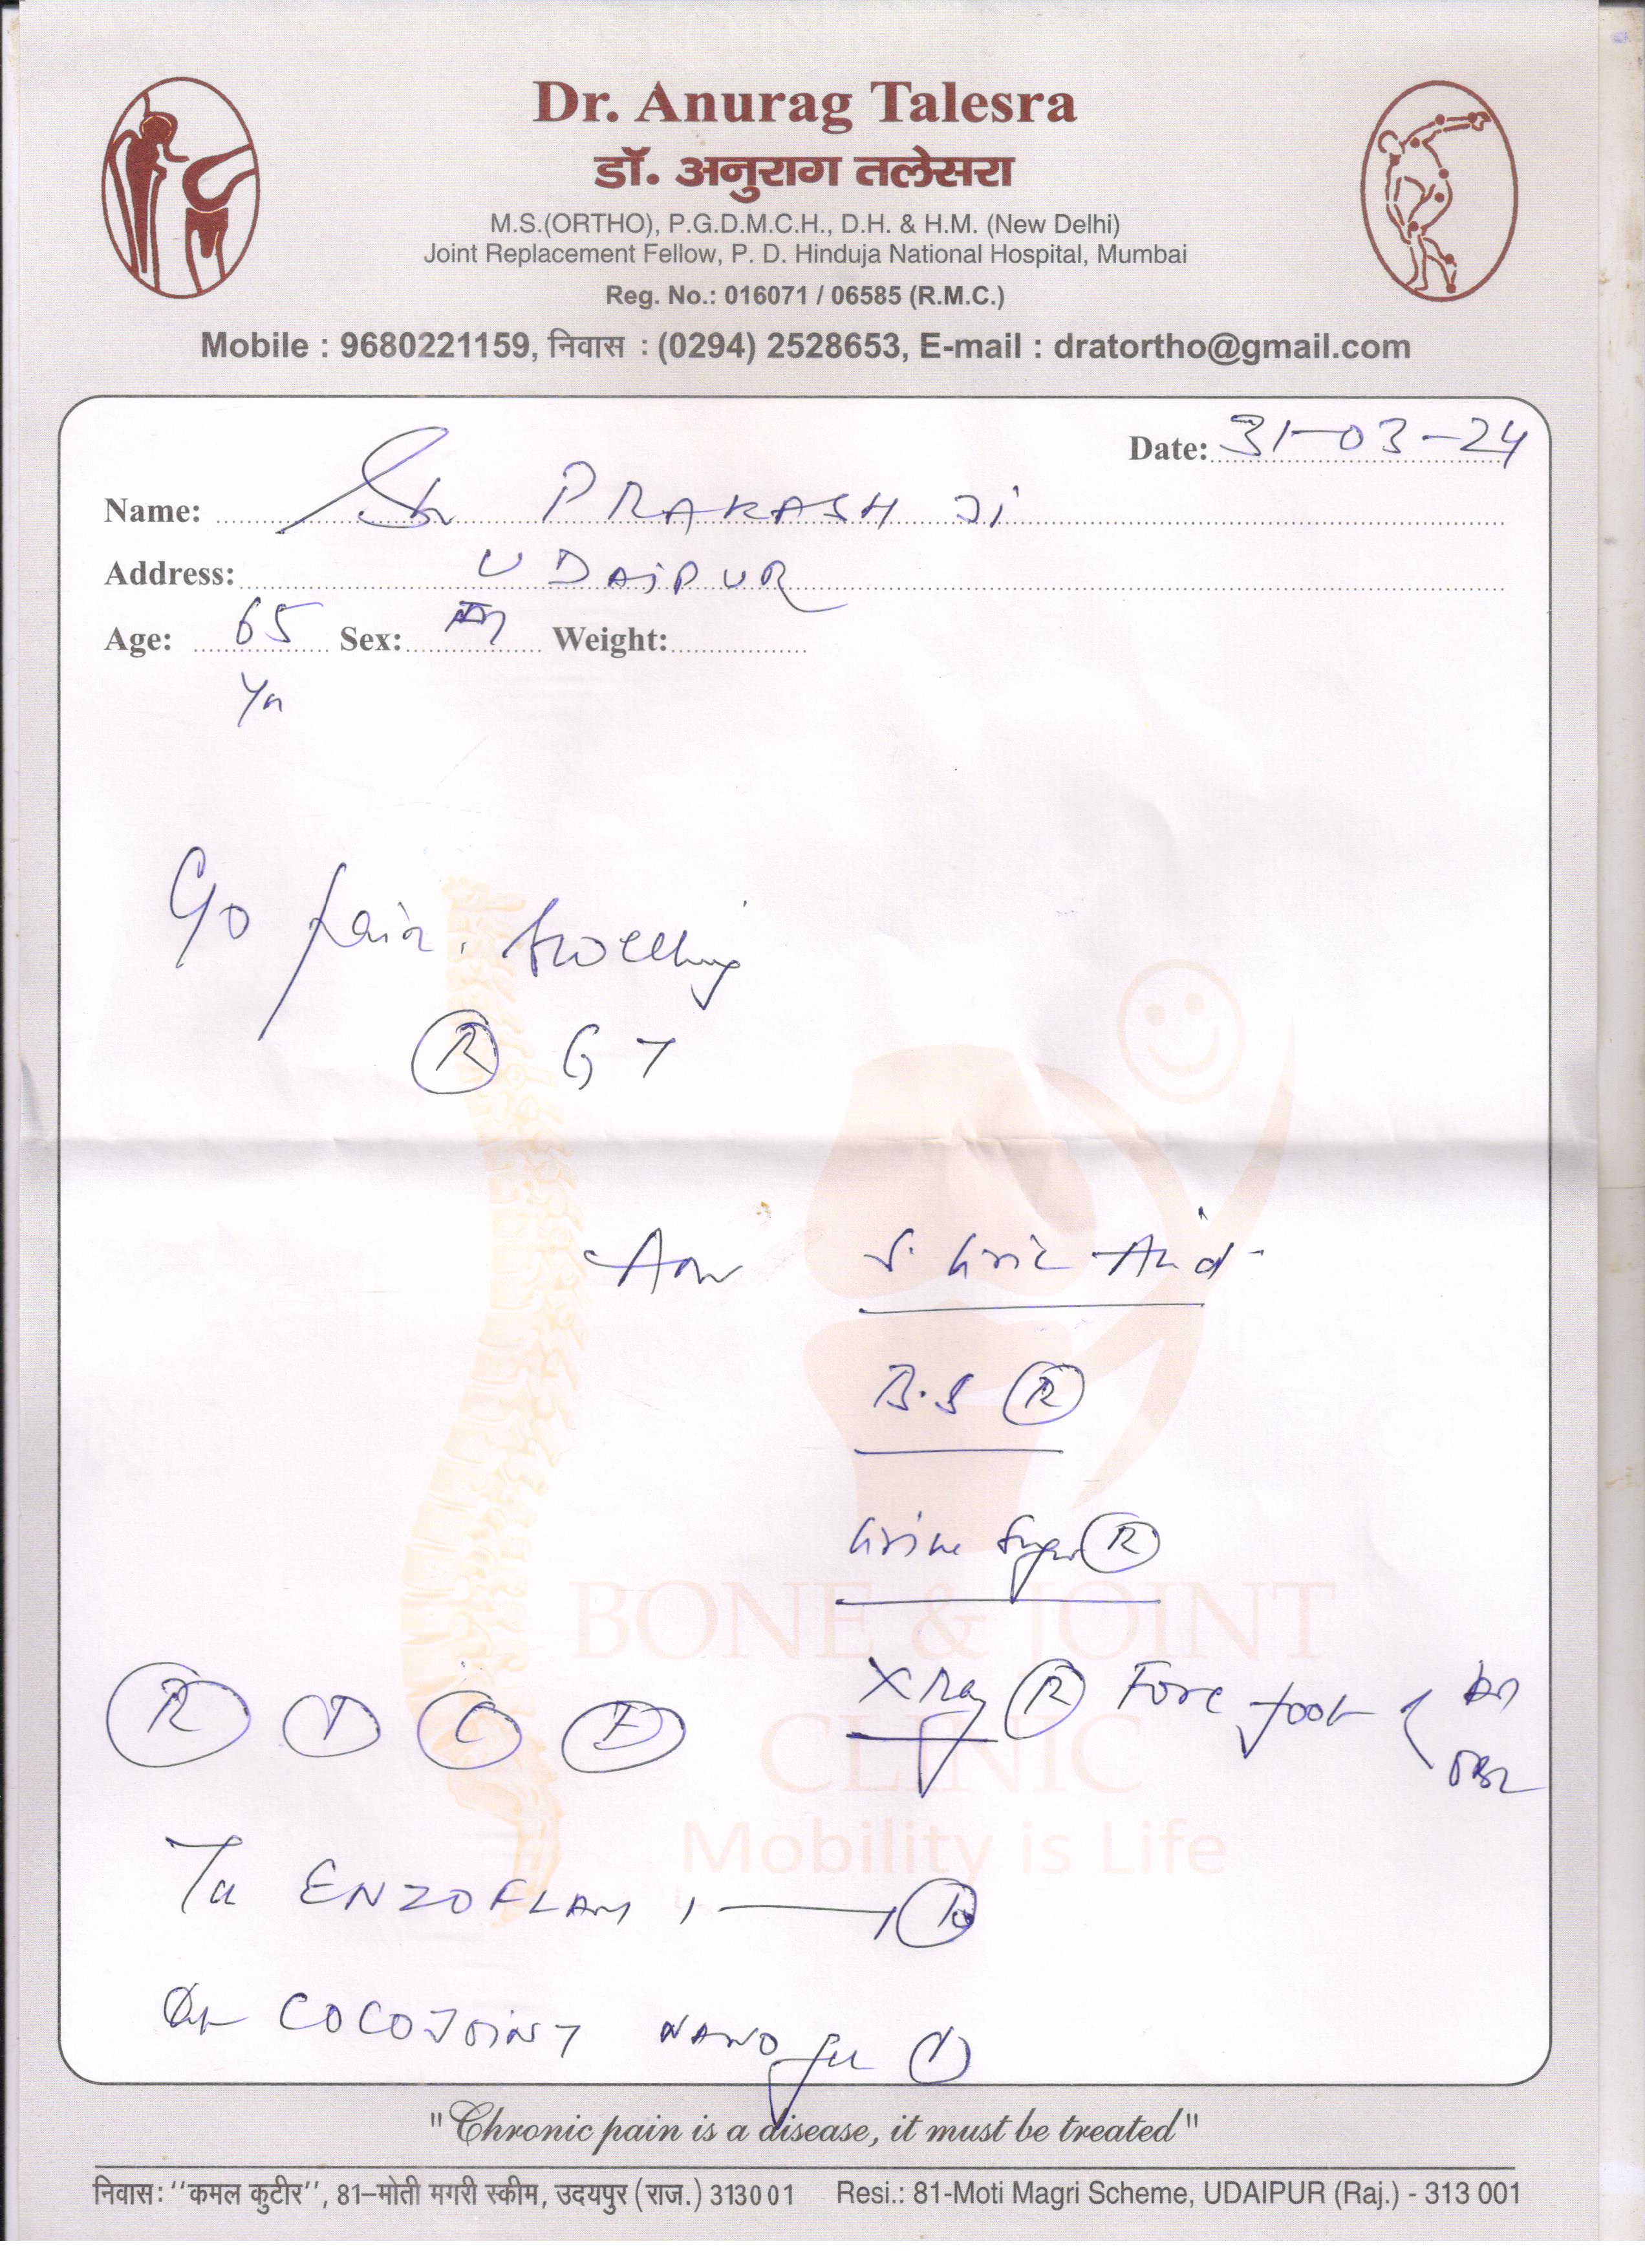 Dr. Anurag Talesra
डॉ. अनुराग तलेसरा
M.S.(ORTHO), P.G.D.M.C.H., D.H. & H.M. (New Delhi)
Joint Replacement Fellow, P. D. Hinduja National Hospital, Mumbai
Reg. No.: 016071 / 06585 (R.M.C.)
Mobile : 9680221159, निवास : (0294) 2528653, E-mail : dratortho@gmail.com
Date: 31-03-24
Name: PRAKASH Ji
Address: UDAIPUR
Age: 65 Sex: M Weight:
Yr
C/o pain, swelling
R GT
Adv S. Uric Acid
B.S R
Urine Sugar R
X Ray R Fore foot AP
OBL
R I C E
BONE & JOINT
CLINIC
Mobility is Life
Ta ENZOFLAM 1
COCOJOINT NANO gel
"Chronic pain is a disease, it must be treated"
निवास: ''कमल कुटीर'', 81–मोती मगरी स्कीम, उदयपुर (राज.) 313001 Resi.: 81-Moti Magri Scheme, UDAIPUR (Raj.) - 313 001